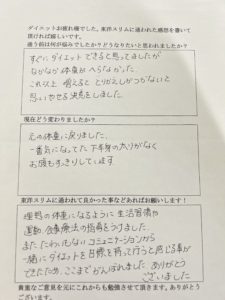 ダイエットお疲れ様でした。東洋スリムに通われた感想を書いて
頂ければ嬉しいです。
通う前は何が悩みでしたか?どうなりたいと思われましたか?
すぐにダイエットできると思ってましたが
なかなか体重がへらなかった。
これ以上増えるととりかえしがつかないと
思いやせる決意をしました。
現在どう変わりましたか?
元の体重に戻りました。
一番気になってた下半身の太りがなく
お腹もすっきりしています
東洋スリムに通われて良かった事などあればお願いします!
理想の体重になるように生活習慣や
運動 食事療法の指導をうけました。
また、たわいもないコミュニケーションから
一緒にダイエットを目標を持って行うと感じる事が
できたため、ここまでがんばれました。ありがとう
ございました
貴重なご意見を元にこれからも勉強させて頂きます。ありがとう
ございます。